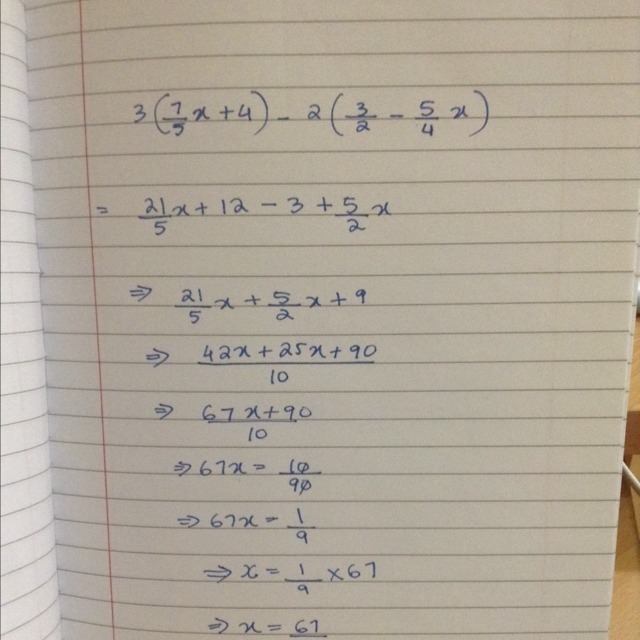 3(7/5x+4) - 2(3/2 - 5/4 x)
= 21/5x+12-3+5/2x
⇒ 21/5x+5/2x+9
⇒ 42x+25x+90/10
⇒ 67x+90/10
⇒67x = 10/90
⇒67x = 1/9
⇒ x = 1/9 ×67
⇒ x = 67